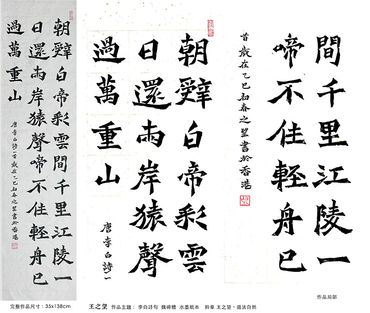 朝辭白帝彩雲間千里江陵一
日還兩岸猿聲啼不住輕舟已
過萬重山 唐李白詩一首歲在乙巳初春之望書於香港
朝辭白帝彩雲
日還兩岸猿聲
過萬重山 唐李白詩一
間千里江陵一
啼不住輕舟已
首歲在乙巳初春之望書於香港
作品局部
完整作品尺寸：35x138cm
王之望 作品主題：李白詩句 魏碑體 水墨紙本 鈐章 王之望、道法自然